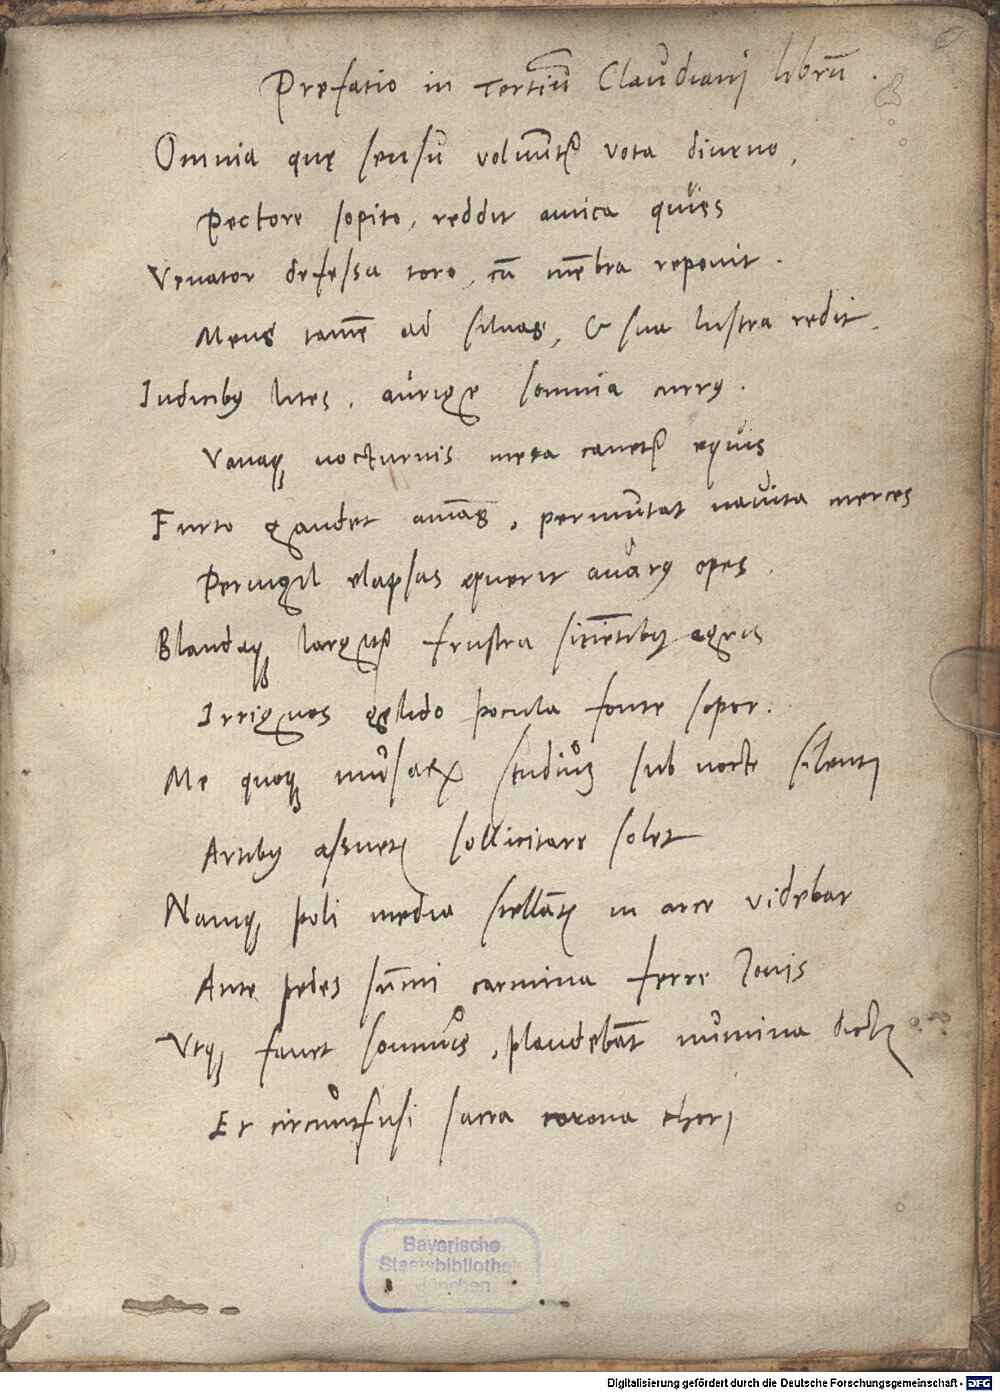 Prefatio in tertiū Claudianj librū.
Omnia quę sensu voluūtr vota diurno,
Pectore sopito, reddit amica quies
Venator defessa toro, cū mēbra reponit.
Mens tamē ad siluas, & sua lustra redit.
Iudicibꝰ lites, aurigę somnia currꝰ.
Vanaqꝫ nocturnis meta cauetr equis
Furto gaudet amās, permūtat nauita merces
Peruigil elapsas querit auarꝰ opes.
Blandaqꝫ largitr frustra sitiētibꝰ egris
Irriguos gelido pocula fonte sopor.
Me quoqꝫ musaꝝ studiuꝫ sub nocte silentj
Artibꝰ assuetj sollicitare solet
Namqꝫ poli media stellātj in arce videbar
Ante pedes sūmi carmina ferre Iouis
Vtqꝫ fauet somnus, plaudebāt numina dictj
Et circunfusi sacra corona chorj
Bayerische
Staatsbibliothek
München
Digitalisierung gefördert durch die Deutsche Forschungsgemeinschaft - DFG